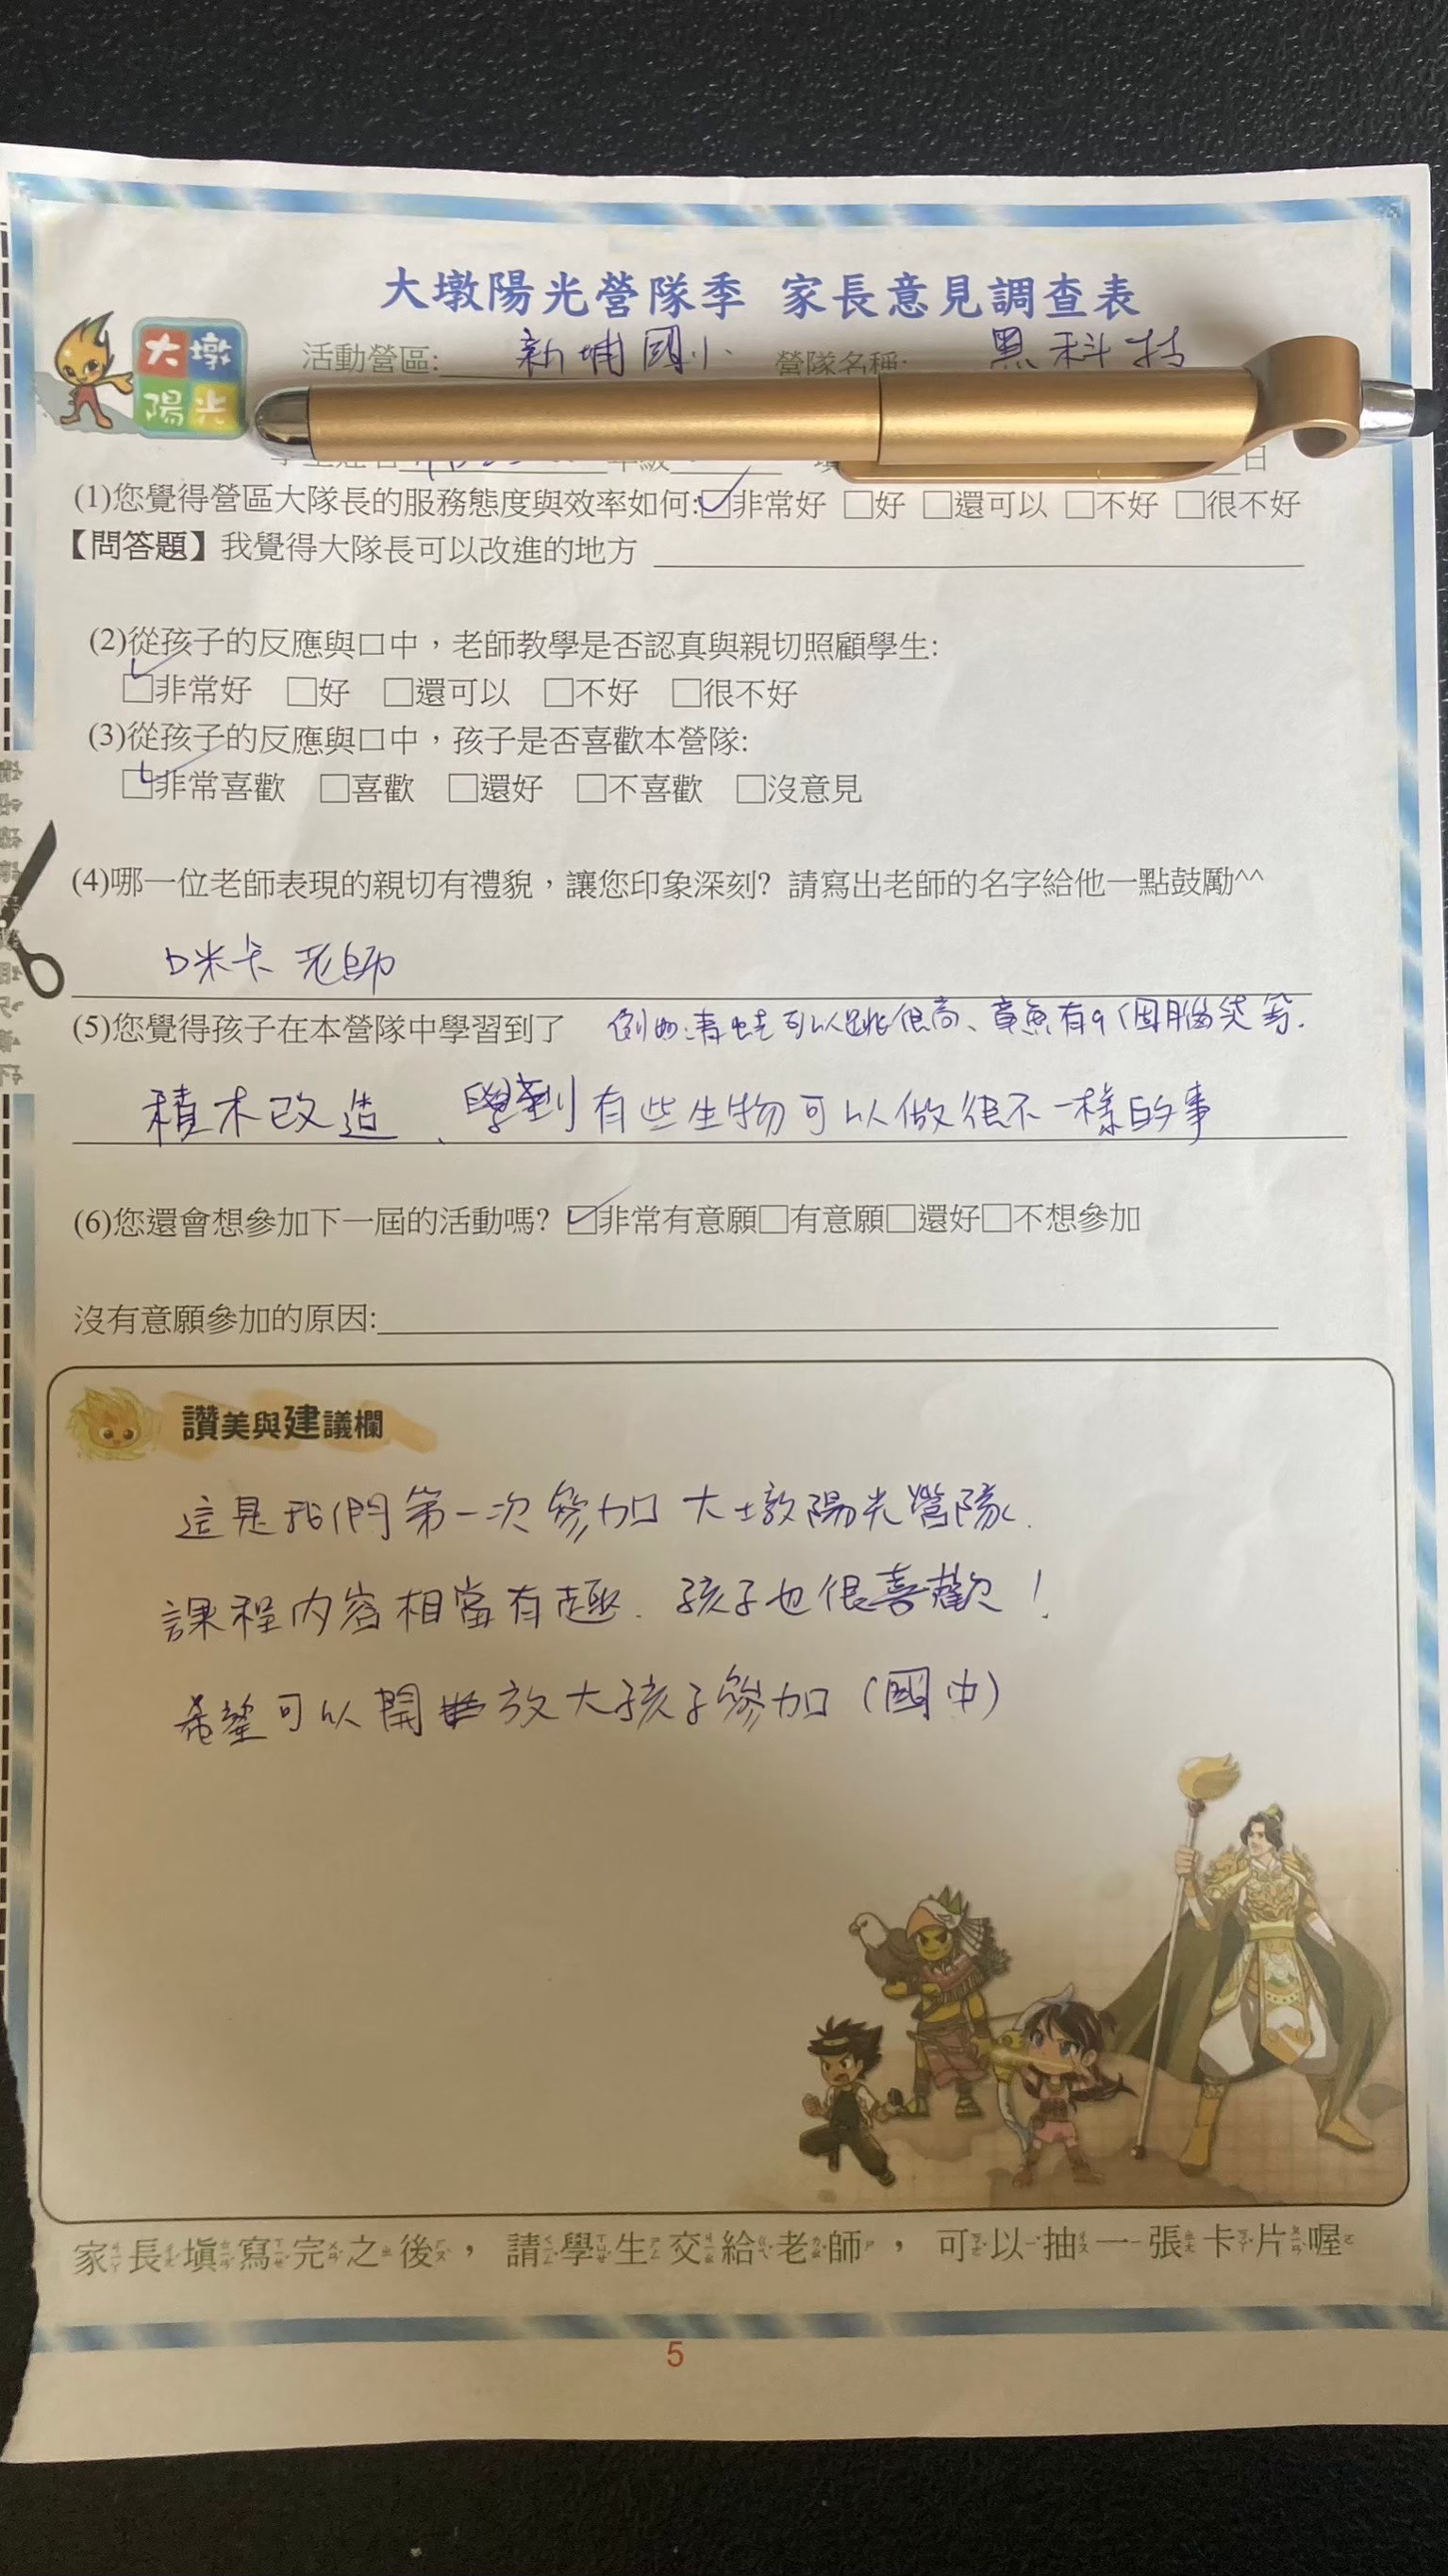 大墩陽光營隊季 家長意見調查表
大墩
陽光
活動營區: 新埔國小 營隊名稱: 黑科技
日
(1)您覺得營區大隊長的服務態度與效率如何:☑非常好 □好 □還可以 □不好 □很不好
【問答題】我覺得大隊長可以改進的地方
(2)從孩子的反應與口中，老師教學是否認真與親切照顧學生:
☑非常好 □好 □還可以 □不好 □很不好
(3)從孩子的反應與口中，孩子是否喜歡本營隊:
☑非常喜歡 □喜歡 □還好 □不喜歡 □沒意見
(4)哪一位老師表現的親切有禮貌，讓您印象深刻? 請寫出老師的名字給他一點鼓勵^^
咪卡老師
(5)您覺得孩子在本營隊中學習到了 例如:青蛙可以跳很高、章魚有9個腦袋等.
積木改造、學到有些生物可以做很不一樣的事
(6)您還會想參加下一屆的活動嗎? ☑非常有意願□有意願□還好□不想參加
沒有意願參加的原因:
讚美與建議欄
這是我們第一次參加大墩陽光營隊.
課程內容相當有趣.孩子也很喜歡!
希望可以開放大孩子參加(國中)
家長填寫完之後，請學生交給老師，可以抽一張卡片喔
5